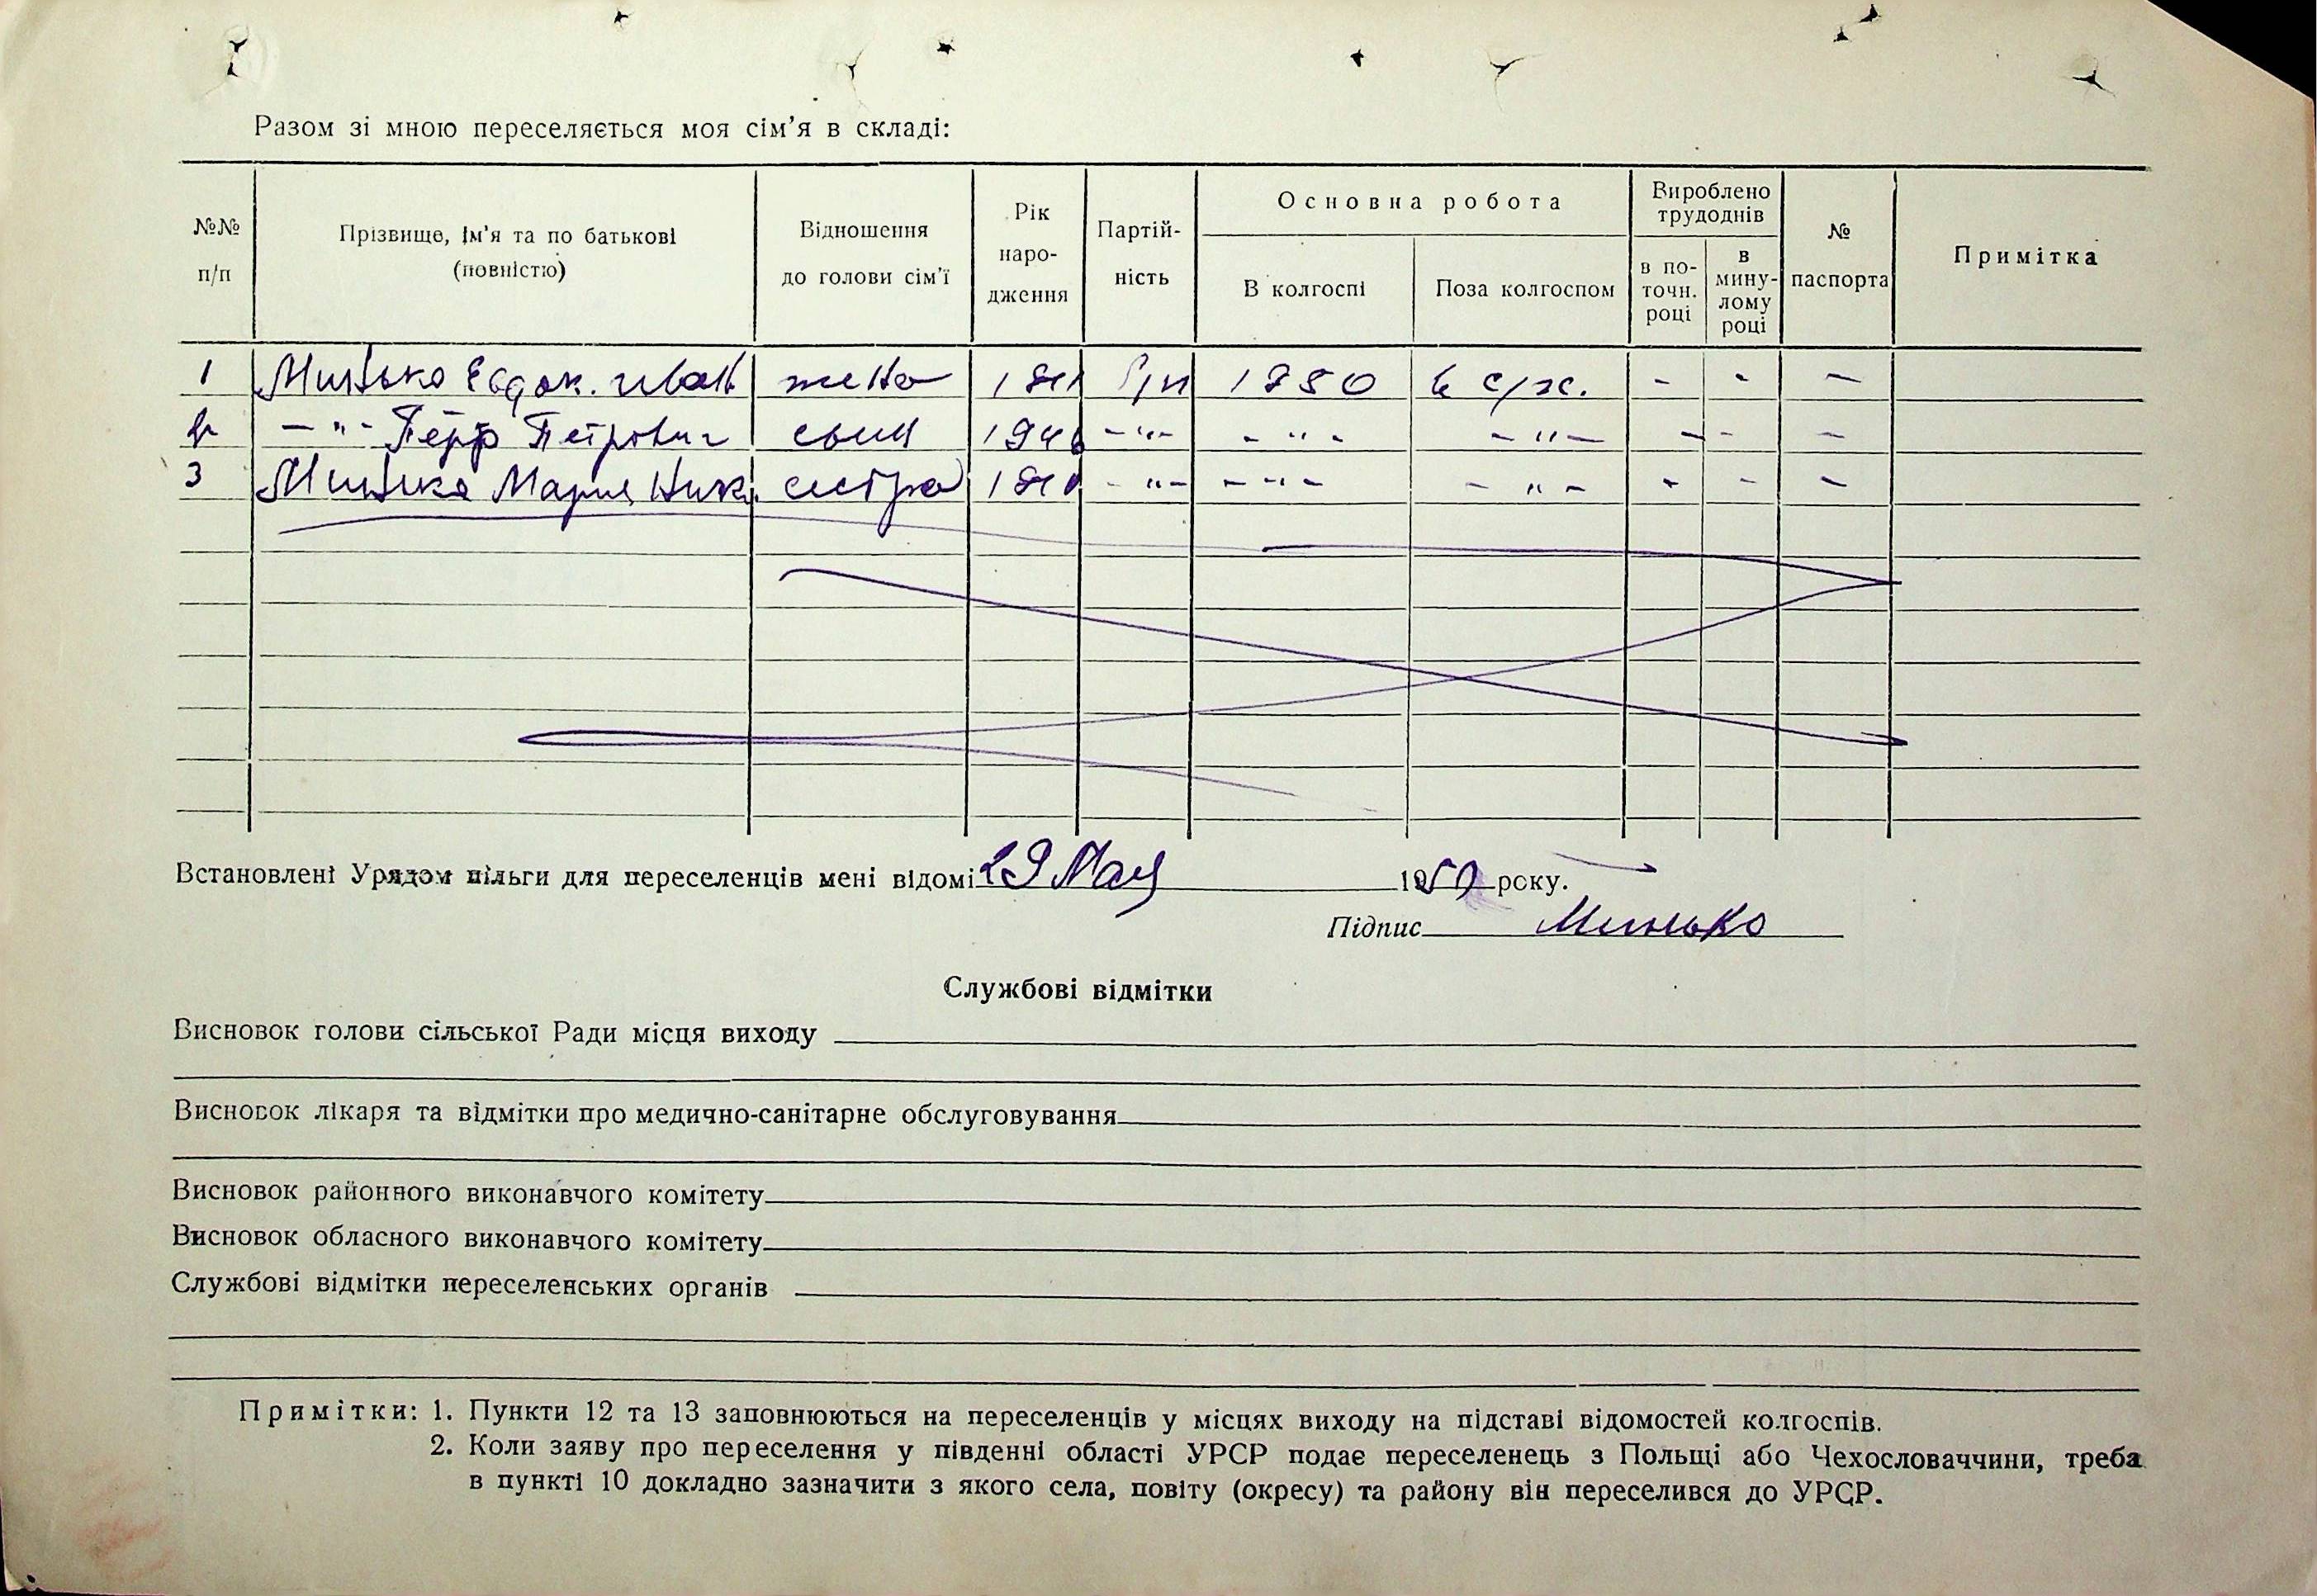 Разом зі мною переселяється моя сім’я в складі:
№№ п/п
Прізвище, ім’я та по батькові (повністю)
Відношення до голови сім’ї
Рік народження
Партійність
Основна робота
В колгоспі
Поза колгоспом
Вироблено трудоднів
в поточн. році
в минулому році
№ паспорта
Примітка
1 Минько Евдок. Иван жена б/п 1950 в с/х. - - -
2 -"- Петр Петрович сын 1946 -"- -"- -"- - - -
3 Минько Мария Ник. сестра -"- -"- -"- - - -
Встановлені Урядом пільги для переселенців мені відомі 29 Мая 1950 року.
Підпис Минько
Службові відмітки
Висновок голови сільської Ради місця виходу
Висновок лікаря та відмітки про медично-санітарне обслуговування
Висновок районного виконавчого комітету
Висновок обласного виконавчого комітету
Службові відмітки переселенських органів
Примітки: 1. Пункти 12 та 13 заповнюються на переселенців у місцях виходу на підставі відомостей колгоспів.
2. Коли заяву про переселення у південні області УРСР подає переселенець з Польщі або Чехословаччини, треба
в пункті 10 докладно зазначити з якого села, повіту (окресу) та району він переселився до УРСР.